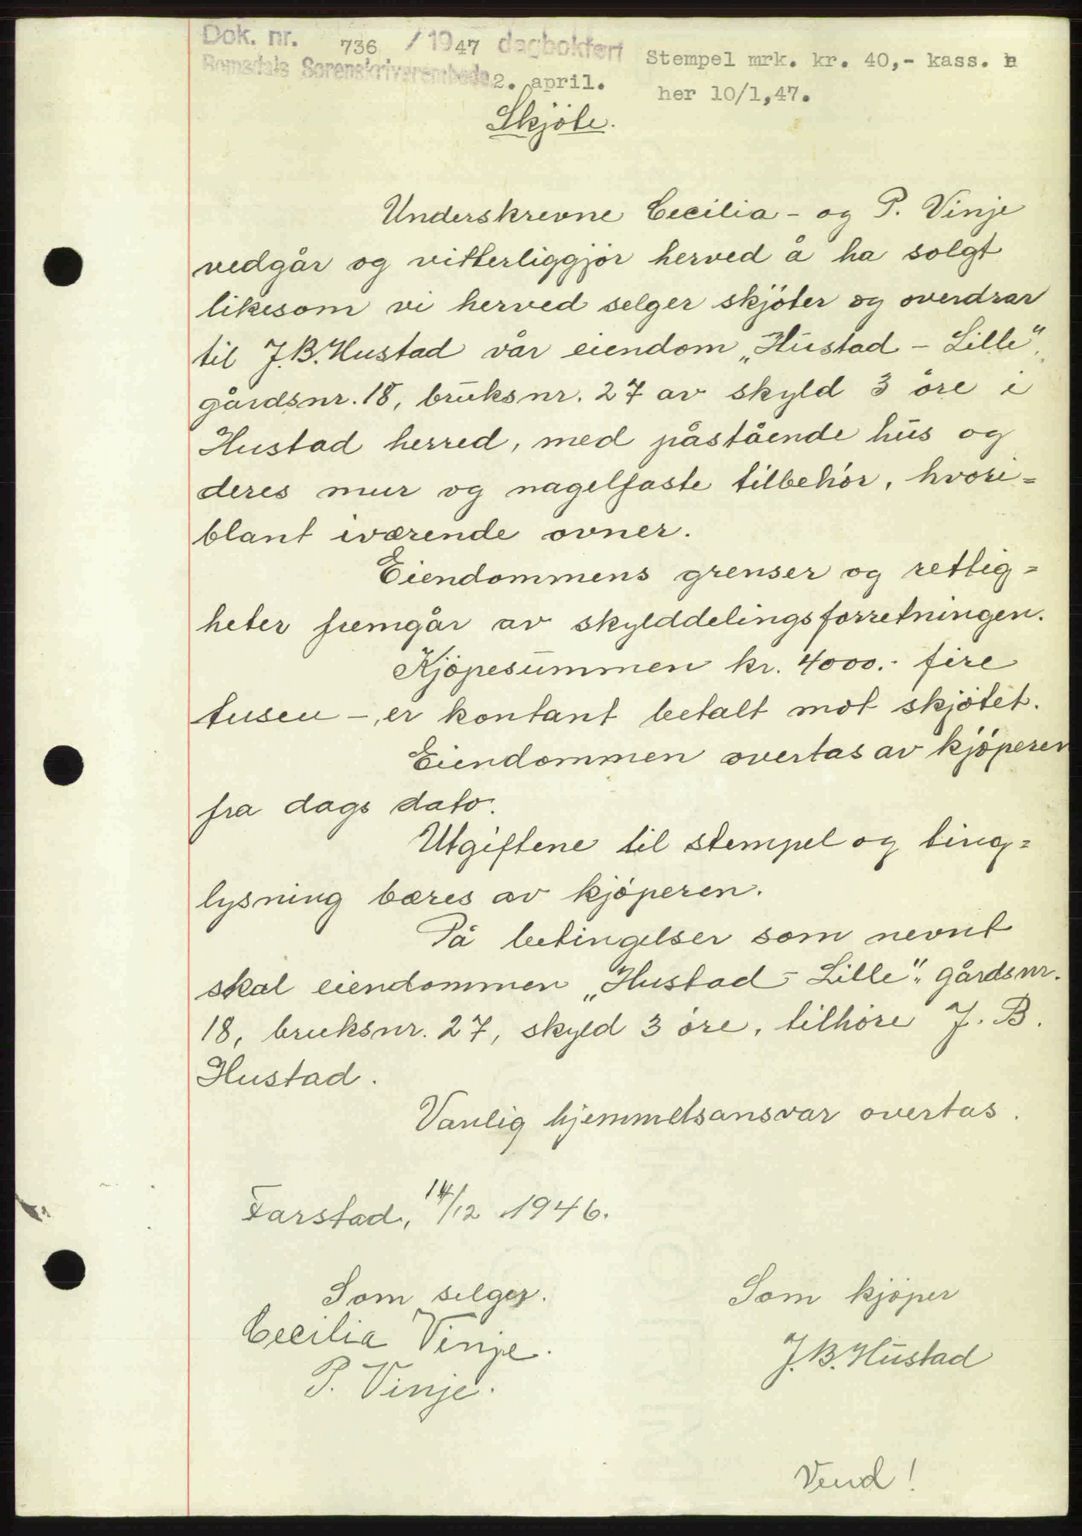 Dok. nr. 736 / 1947 dagbokført
Romsdals Sorenskriverembede 2. april.
Stempel mrk. kr. 40,- kass.
her 10/1,47.
Skjöte.
Underskrevne Cecilia - og P. Vinje
vedgår og vitterliggjör herved å ha solgt
likesom vi herved selger skjöter og overdrar
til J.B. Hustad vår eiendom „Hustad - Lille",
gårdsnr. 18, bruksnr. 27 av skyld 3 öre i
Hustad herred, med påstående hus og
deres mur og nagelfaste tilbehör, hvori=
blant iværende ovner.
Eiendommens grenser og rettig=
heter fremgår av skylddelingsforretningen.
Kjöpesummen kr. 4000.- fire
tusen -, er kontant betalt mot skjötet.
Eiendommen overtas av kjöperen
fra dags dato.
Utgiftene til stempel og ting=
lysning bæres av kjöperen.
På betingelser som nevnt
skal eiendommen „Hustad - Lille". gårdsnr.
18, bruksnr. 27, skyld 3 öre, tilhöre J. B.
Hustad.
Vanlig hjemmelsansvar overtas.
Farstad, 14/12 1946.
Som selger.
Cecilia Vinje.
P. Vinje.
Som kjöper
J.B. Hustad
Vend!